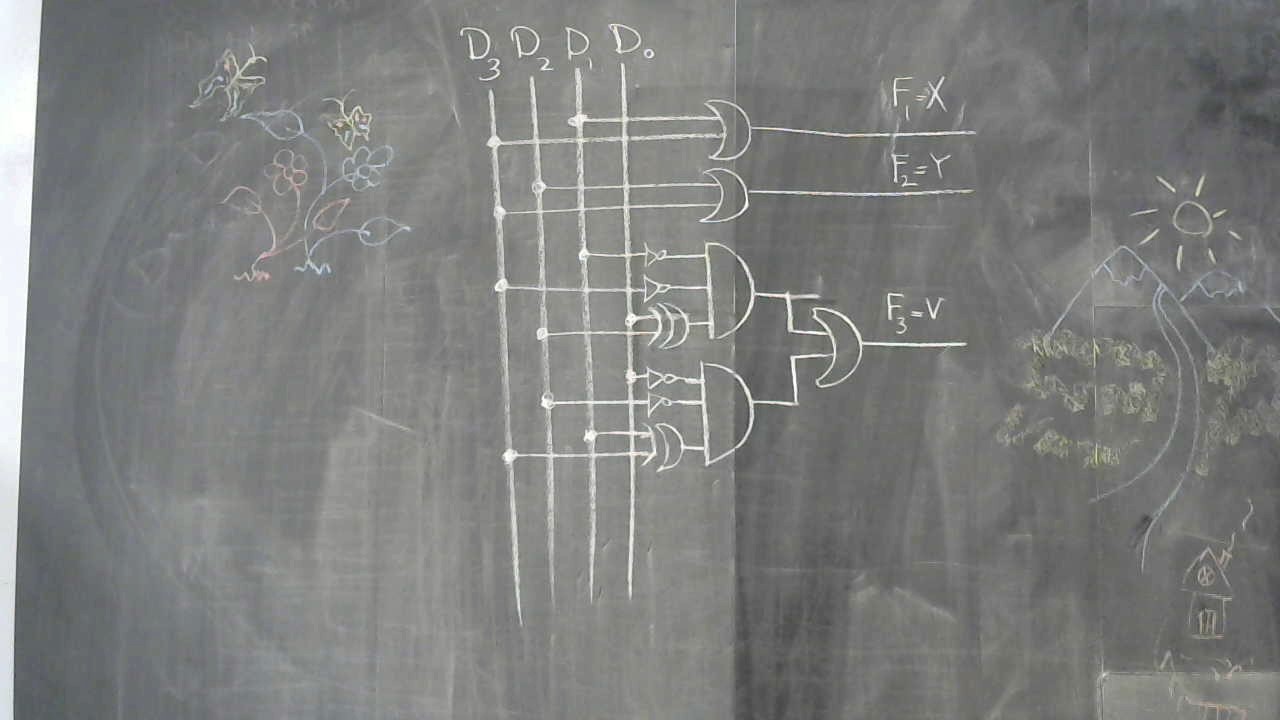 D₃ D₂ D₁ D₀
F₁=X
F₂=Y
F₃=V